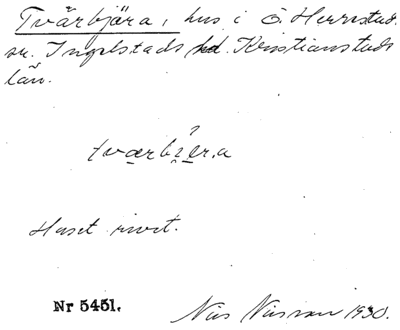 Tvärbjära, hus i Ö. Herrestads
sn. Ingelstads hd. Kristianstads
län.
tværbi̯er.a
Huset rivet.
Nr 5451.
Nils Nilsson 1930.